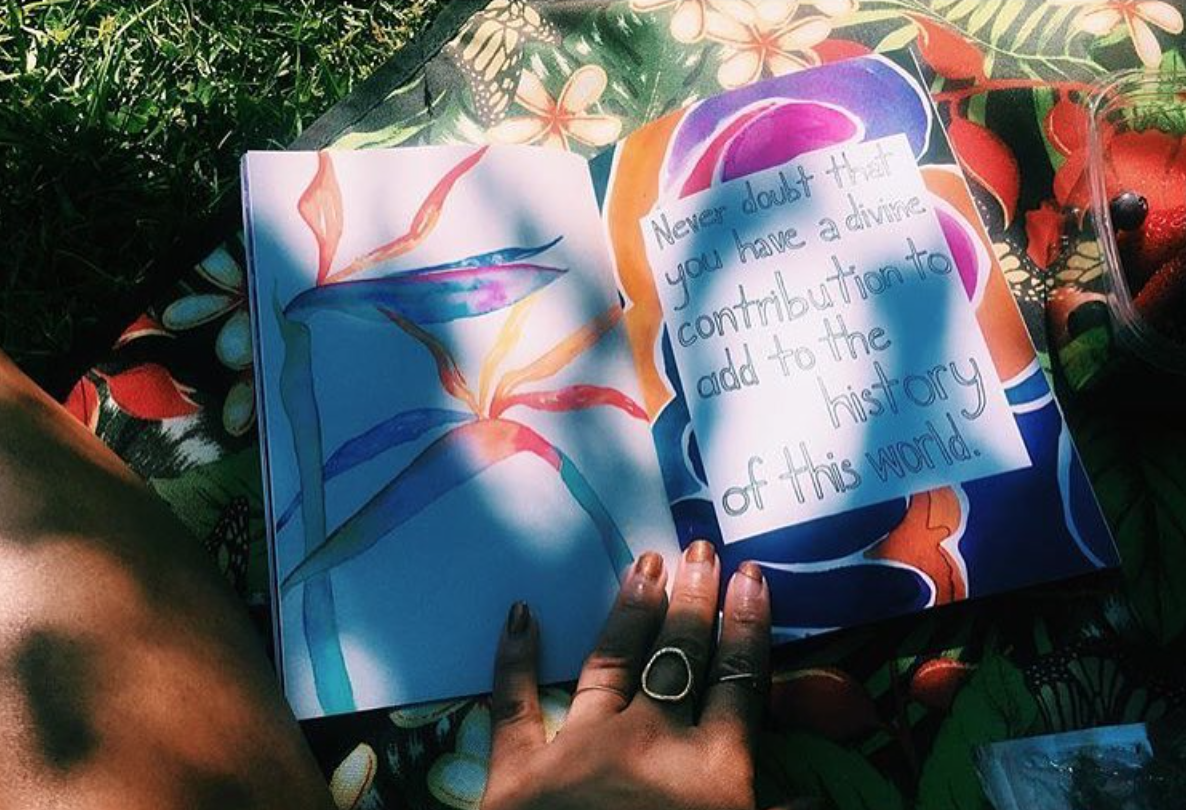 Never doubt that
you have a divine
contribution to
add to the
history
of this world.